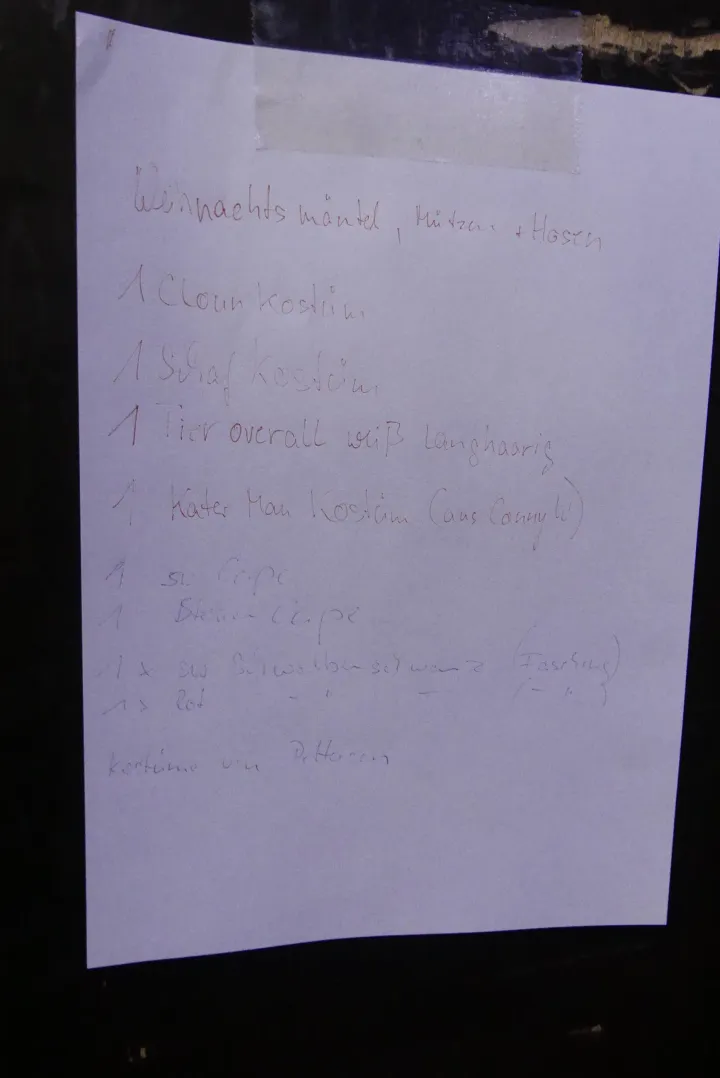 Weihnachtsmäntel, Mützen + Hosen
1 Clown Kostüm
1 Schaf Kostüm
1 Tier overall weiß langhaarig
1 Kater Man Kostüm (aus
1 Cape
1 Cape
1 x sw Schwalbenschwanz (Fasching)
1 x Rot - " - (- " -)
Kostüme von Pettersson